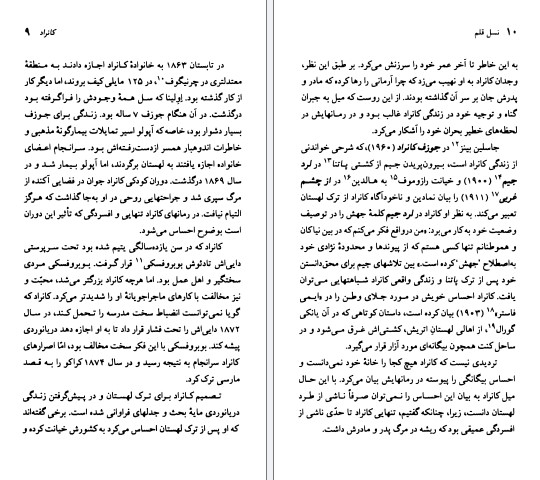 کانراد ۹
در تابستان ۱۸۶۳ به خانوادهٔ کانراد اجازه دادند به منطقهٔ
معتدلتری در چرنیگوف۱۰، در ۱۲۵ مایلی کیف بروند، اما دیگر کار
از کار گذشته بود. اِوِلینا که سل همهٔ وجودش را فراگرفته بود
درگذشت. در آن هنگام جوزف ۷ ساله بود. زندگی برای جوزف
بسیار دشوار بود، خاصه که آپولو اسیر تمایلات بیمارگونهٔ مذهبی و
خاطرات اندوهبار همسر ازدست‌رفته‌اش بود. سرانجام اعضای
خانواده اجازه یافتند به لهستان برگردند، اما آپولو بیمار شد و در
سال ۱۸۶۹ درگذشت. دوران کودکی کانراد جوان در فضایی آکنده از
مرگ سپری شد و جراحتهایی روحی در او به‌جا گذاشت که هرگز
التیام نیافت. در رمانهای کانراد تنهایی و افسردگی که تأثیر این دوران
است بوضوح احساس می‌شود.
کانراد که در سن یازده‌سالگی یتیم شده بود تحت سرپرستی
دایی‌اش تادئوش بوبروفسکی۱۱ قرار گرفت. بوبروفسکی مردی
سختگیر و اهل عمل بود. اما هرچه کانراد بزرگتر می‌شد، محبّت و
نیز مخالفت با کارهای ماجراجویانهٔ او را شدیدتر می‌کرد. کانراد که
گویا نمی‌توانست انضباط سخت مدرسه را تحمل کند، در سال
۱۸۷۲ دایی‌اش را تحت فشار قرار داد تا به او اجازه دهد دریانوردی
پیشه کند. بوبروفسکی با این فکر سخت مخالف بود، امّا اصرارهای
کانراد سرانجام به نتیجه رسید و در سال ۱۸۷۴ کراکو را به قصد
مارسی ترک کرد.
تصمیم کانراد برای ترک لهستان و در پیش‌گرفتن زندگی
دریانوردی مایهٔ بحث و جدلهای فراوانی شده است. برخی گفته‌اند
که او پس از ترک لهستان احساس می‌کرد به کشورش خیانت کرده و
۱۰ نسل قلم
به این خاطر تا آخر عمر خود را سرزنش می‌کرد. بر طبق این نظر،
وجدان کانراد به او نهیب می‌زد که چرا آرمانی را رها کرده که مادر و
پدرش جان بر سر آن گذاشته بودند. از این روست که میل به جبران
گناه و توجیه خود در زندگی کانراد غالب بود و در رمانهایش در
لحظه‌های خطیر بحران خود را آشکار می‌کرد.
جاسلین بینز۱۲ در جوزف کانراد (۱۹۶۰)، که شرحی خواندنی
از زندگی کانراد است، بیرون‌پریدن جیم از کشتی پاتنا۱۳ در لرد
جیم۱۴ (۱۹۰۰) و خیانت رازوموف۱۵ به هالدین۱۶ در از چشم
غربی۱۷ (۱۹۱۱) را بیان نمادین و ناخودآگاه کانراد از ترک لهستان
تعبیر می‌کند. به نظر او کانراد در لرد جیم کلمهٔ جهش را در توصیف
وضعیت خود به کار می‌برد: «من درواقع فکر می‌کنم که در بین نیاکان
و هموطنانم تنها کسی هستم که از پیوندها و محدودهٔ نژادی خود
به‌اصطلاح 'جهش' کرده است.» بین تلاشهای جیم برای محق‌دانستن
خود پس از ترک پاتنا و زندگی واقعی کانراد شباهتهایی می‌توان
یافت. کانراد احساس خویش در مورد جلای وطن را در «ایمی
فاستر»۱۸ (۱۹۰۳) بیان کرده است، داستان کوتاهی که در آن یانکی
گورال۱۹، از اهالی لهستانِ اتریش، کشتی‌اش غرق می‌شود و در
ساحل کنت همچون بیگانه‌ای مورد آزار قرار می‌گیرد.
تردیدی نیست که کانراد هیچ کجا را خانهٔ خود نمی‌دانست و
احساس بیگانگی را پیوسته در رمانهایش بیان می‌کرد. با این حال
میل کانراد به بیان این احساس را نمی‌توان صرفاً ناشی از طرد
لهستان دانست، زیرا، چنانکه گفتیم، تنهایی کانراد تا حدّی ناشی از
افسردگی عمیقی بود که ریشه در مرگ پدر و مادرش داشت.